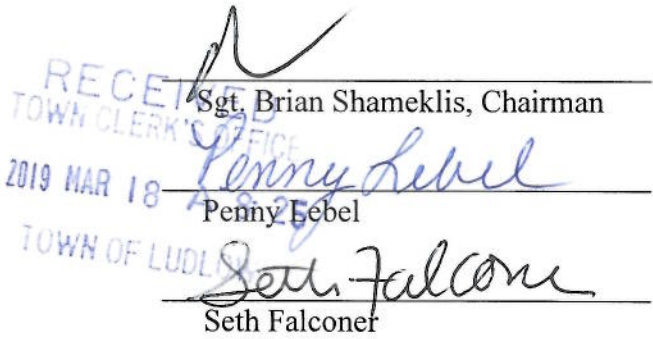 RECEIVED
TOWN CLERK'S OFFICE
2019 MAR 18 A 8: 25
TOWN OF LUDLOW
Sgt. Brian Shameklis, Chairman
Penny Lebel
Penny Lebel
Seth Falconer
Seth Falconer